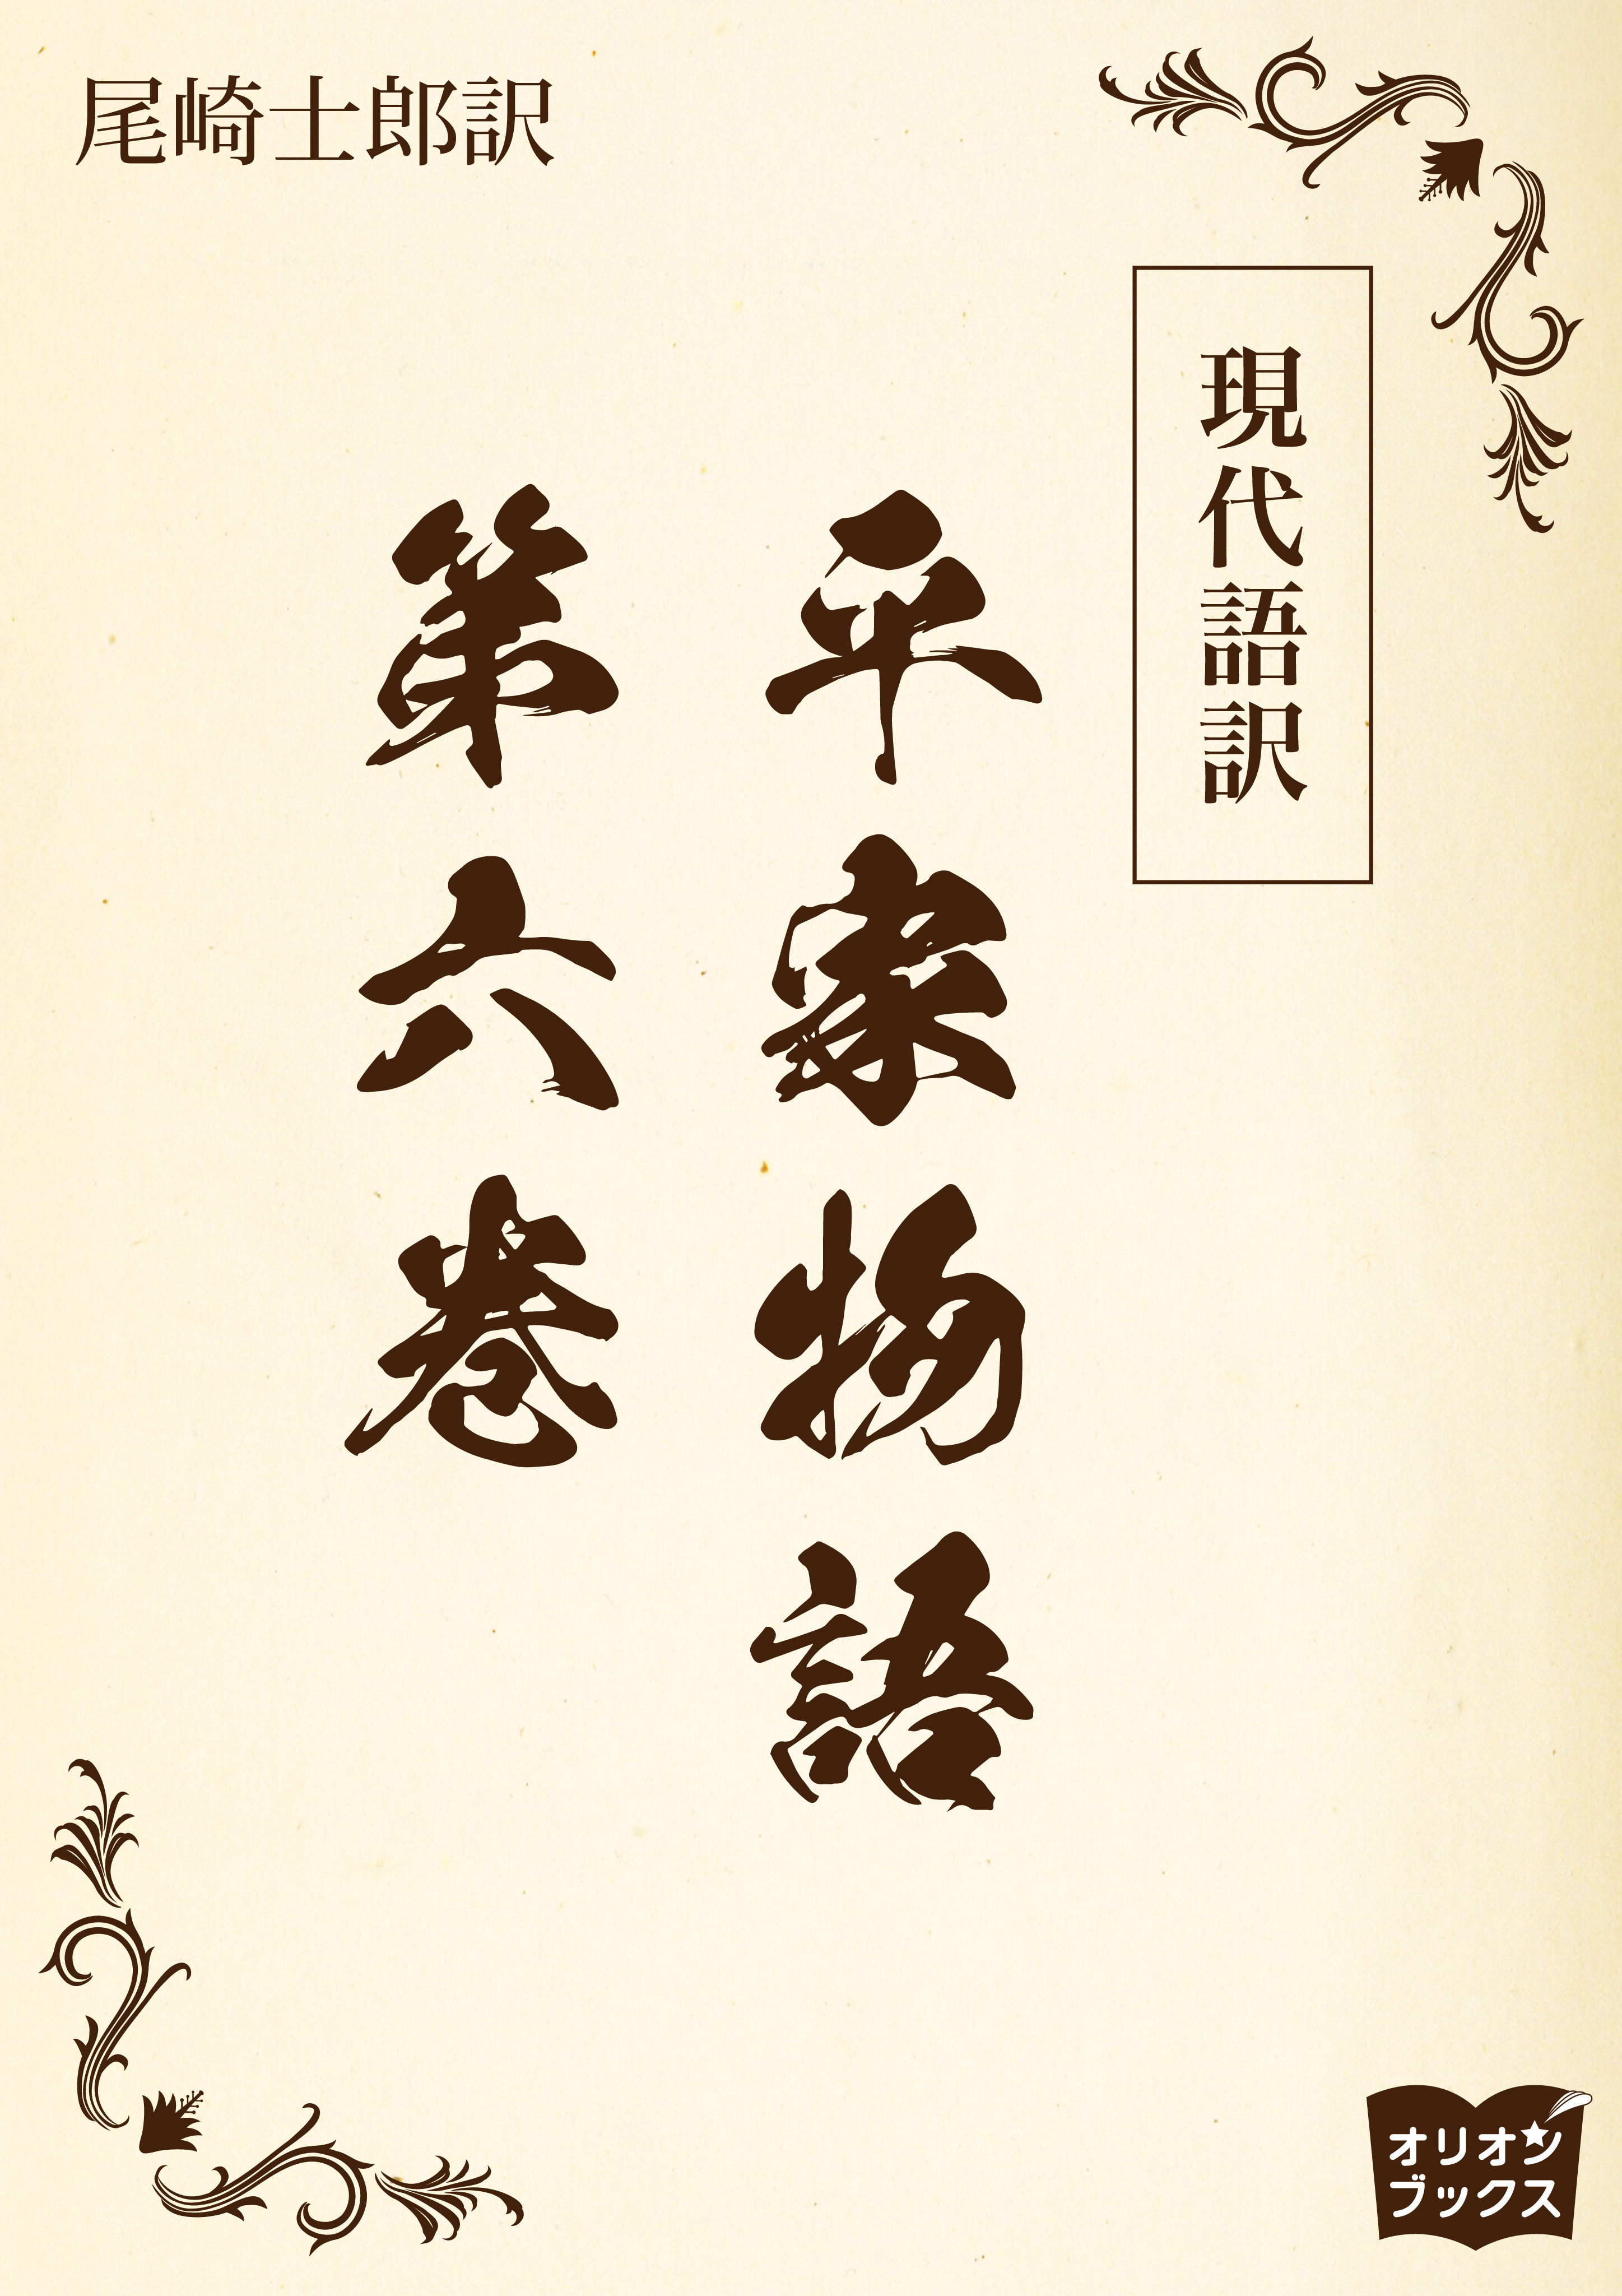 尾崎士郎訳
現代語訳
平家物語
第六巻
オリオン
ブックス